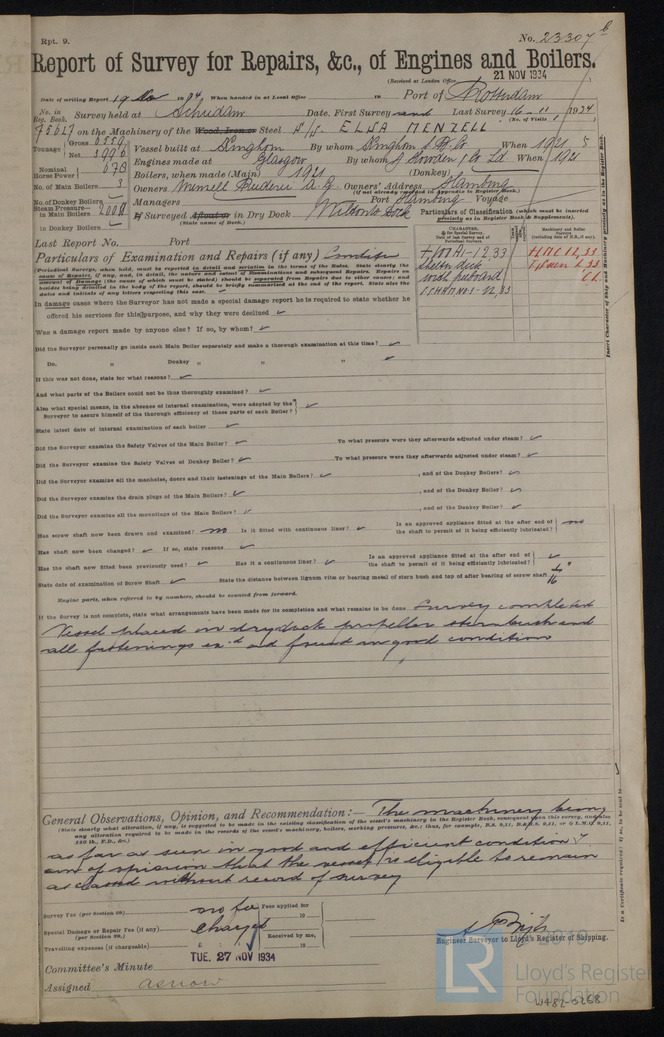 Rpt. 9.
No. 23307
Report of Survey for Repairs, &c., of Engines and Boilers.
(Received at London Office 21 NOV 1934)
Date of writing Report 19 Nov 1934 When handed in at Local Office 19 Port of Rotterdam
No. in Reg. Book. Survey held at Schiedam Date, First Survey and Last Survey 16-11 1934
(No. of Visits 1)
on the Machinery of the Wood, Iron or Steel S/S. ELSA MENZELL
Tonnage Gross 6559
Net 3996
Vessel built at Kinghorn By whom Kinghorn S.B. Co When 1921 5
Engines made at Glasgow By whom J Rowan & Co Ld When 1921
Nominal Horse Power 678
Boilers, when made (Main) 1921 (Donkey)
No. of Main Boilers 3
Owners Menzell Owners' Address Hamburg
(if not already recorded in Appendix to Register Book.)
No. of Donkey Boilers
Managers Port Hamburg Voyage
Steam Pressure in Main Boilers 200
in Donkey Boilers
If Surveyed Afloat or in Dry Dock Wiltons Dock
(State name of Dock.)
Particulars of Classification (which must be inserted precisely as in Register Book & Supplements).
Last Report No. Port
Particulars of Examination and Repairs (if any) Condition
CHARACTER.
Machinery and Boiler Surveys
+100A1-12.33
shelter deck
+LMC 12,33
CL.
Insert Character of Ship and Machinery precisely as in the Register Book.
a damage cases where the Surveyor has not made a special damage report he is required to state whether he
offered his services for this purpose, and why they were declined
Was a damage report made by anyone else? If so, by whom?
Did the Surveyor personally go inside each Main Boiler separately and make a thorough examination at this time?
Do. " Donkey " " "
If this was not done, state for what reasons?
And what parts of the Boilers could not be thus thoroughly examined?
Also what special means, in the absence of internal examination, were adopted by the
Surveyor to assure himself of the thorough efficiency of these parts of each Boiler?
State latest date of internal examination of each boiler
Did the Surveyor examine the Safety Valves of the Main Boiler? To what pressure were they afterwards adjusted under steam?
Did the Surveyor examine the Safety Valves of Donkey Boiler? To what pressure were they afterwards adjusted under steam?
Did the Surveyor examine all the manholes, doors and their fastenings of the Main Boilers? , and of the Donkey Boilers?
Did the Surveyor examine the drain plugs of the Main Boilers? , and of the Donkey Boiler?
Did the Surveyor examine all the mountings of the Main Boilers? , and of the Donkey Boiler?
Has screw shaft now been drawn and examined? no Is it fitted with continuous liner? Is an approved appliance fitted at the after end of the shaft to permit of it being efficiently lubricated? no
Has shaft now been changed? If so, state reasons
Has the shaft now fitted been previously used? Has it a continuous liner? Is an approved appliance fitted at the after end of the shaft to permit of it being efficiently lubricated?
State date of examination of Screw Shaft State the distance between lignum vitæ or bearing metal of stern bush and top of after bearing of screw shaft
Engine parts, when referred to by numbers, should be counted from forward.
If the Survey is not complete, state what arrangements have been made for its completion and what remains to be done Survey completed
Vessel placed in dry dock propeller sternbush and
all fastenings ex.d and found in good condition
General Observations, Opinion, and Recommendation:— The machinery being
as far as seen in good and efficient condition I
am of opinion that the vessel is eligible to remain
as classed without record of survey
Survey Fee (per Section 29) no fee Fees applied for 19
Special Damage or Repair Fee (if any) (per Section 29.) charged
Received by me, 19
Travelling expenses (if chargeable)
Engineer Surveyor to Lloyd's Register of Shipping.
Committee's Minute TUE. 27 NOV 1934
Assigned as now
2019
LR
Lloyd's Register
Foundation
W482-0268